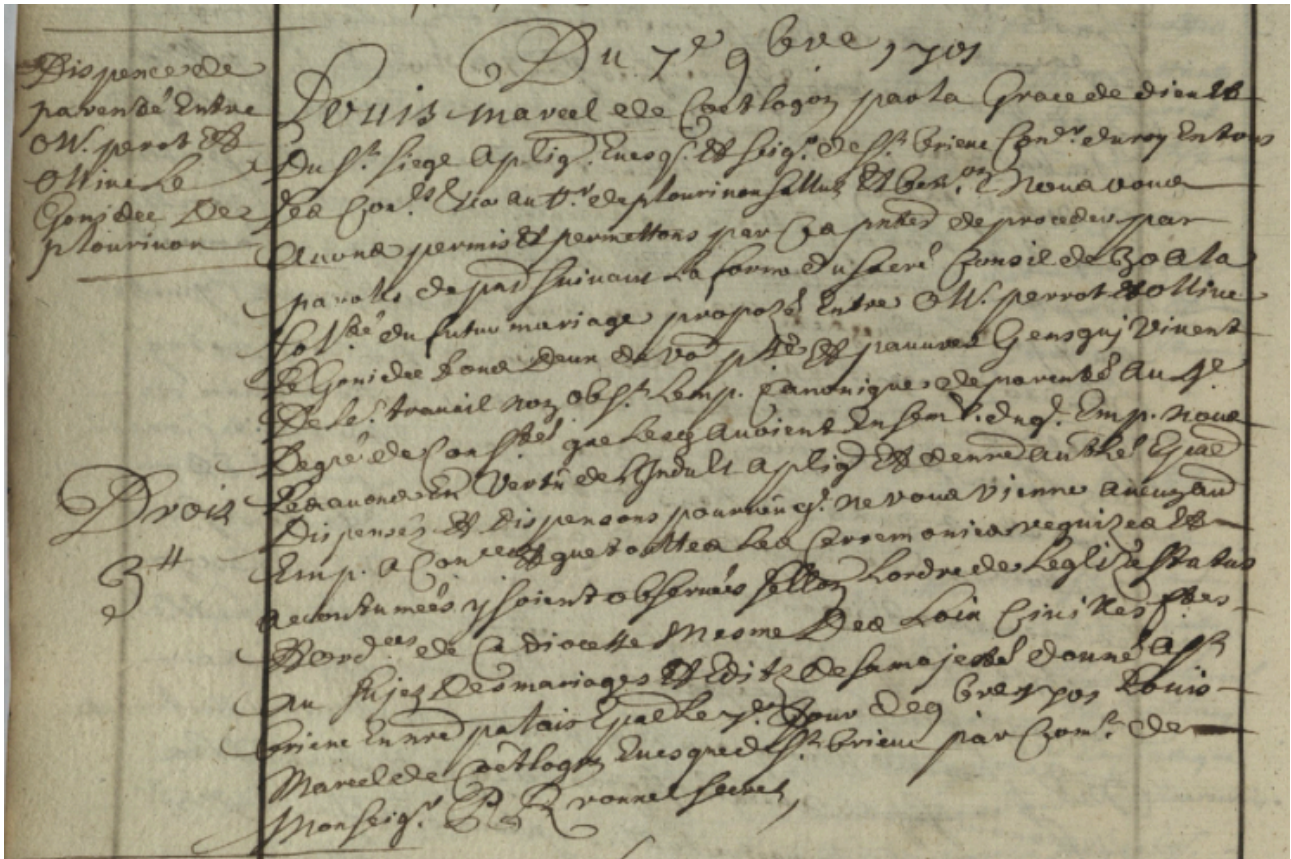 Du 7e 9bre 1701
Dispence de
parenté Entre
Ol. perot et
Ollive Le
Gonidec De
plourivou
Louis marcel de Coetlogon par la Grace de dieu et
du St. siege apliq. Evesq. et seig. de St. brieuc Conr. du roy En tous
ses de plourivou sallut et Nous vous
avons permis et permettons par Ces pntes de proceder par
parolles de pnt suivant La forme du sacré Concil de a la
du futur mariage propozé Entre Ol. perrot et ollive
Le Gonidec tous deux de et pauvres Gens quj vivent
De Le. travail Lemp. Canonique de parenté au 4e.
Degré de que Lesq. avoient Ensemb. duq. Emp. nous
Les avons En Vertu de L'Indult apliq. et de nre authté Epale
Dispensés et Dispensons pourveu q. ne vous vienne aucun aue
Emp. a et que touttes Les Cerremonies requizes et
acoutumées y soient observées sellon Lordre de Leglize statuts
et ordces de Ce diocesse mesme Des Loix Civilles
au sujez Des mariages et Editz de sa majesté donné a St
brieuc En nre palais Epal Le 7e. Jour de 9bre 1701 Louis
Marcel de Coetlogon Evesque de St. brieuc par Comt. de
Monseig. secret.
Drois
3 ₶